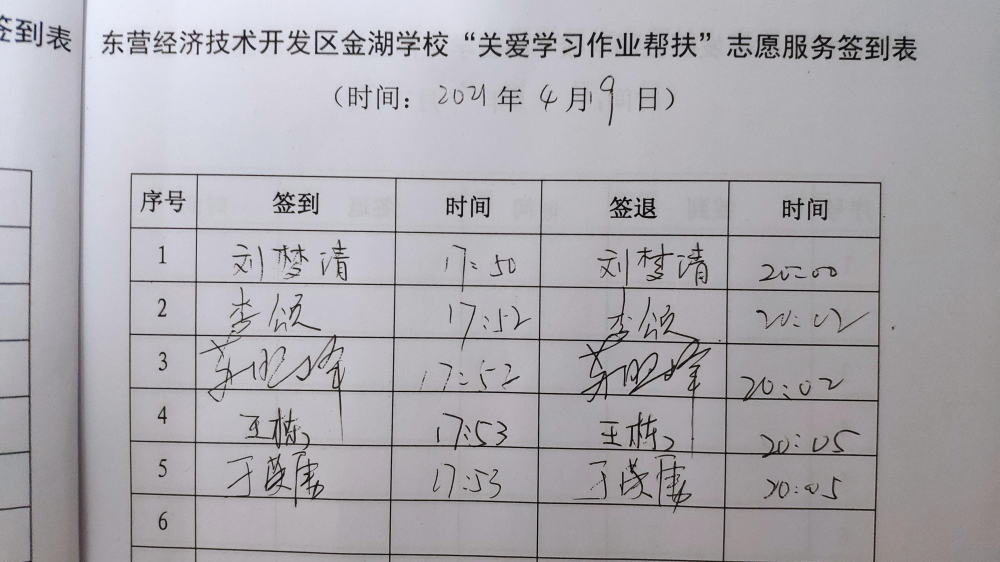 签到表
东营经济技术开发区金湖学校“关爱学习作业帮扶”志愿服务签到表
（时间：2021年4月9日）
序号 签到 时间 签退 时间
1 刘梦清 17:50 刘梦清 20:00
2 李颂 17:52 李颂 20:02
3 17:52 20:02
4 王栋 17:53 王栋 20:05
5 17:53 20:05
6